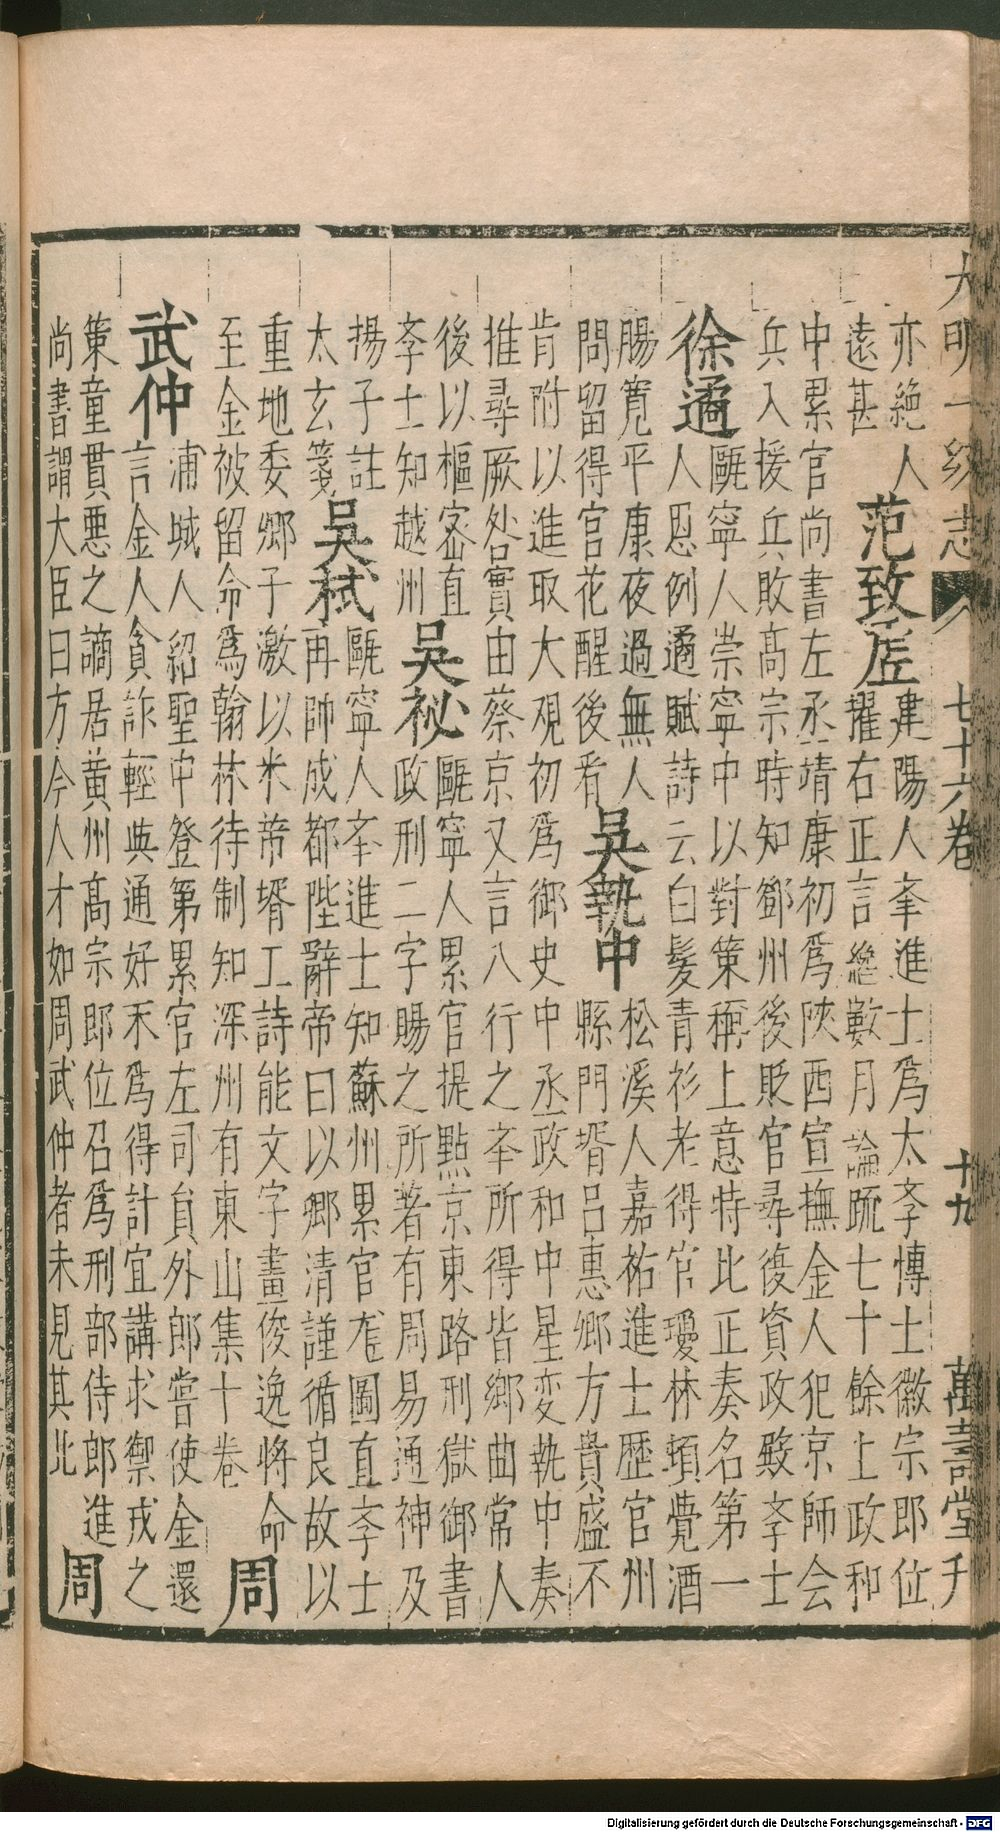 大明一統志 七十六卷 十九 萬壽堂刋
亦絶人
遠甚
范致虗
建陽人㪯進士爲太孝博士徽宗即位
擢右正言縂數月論䟽七十餘上政和
中累官尚書左丞靖康初爲陜西宣撫金人犯京師会
兵入援兵敗髙宗時知鄧州後貶官尋復資政殿孝士
徐遹
甌寧人崇寧中以對策稱上意特比正奏名第一
人恩例遹賦詩云白髪青衫老得官瓊林頓覺酒
腸寛平康夜過無人
問留得官花醒後看
吳執中
松溪人嘉祐進士歴官州
縣門壻吕惠卿方貴盛不
肯附以進取大观初爲御史中丞政和中星变執中奏
推尋厥咎實由蔡京又言八行之㪯所得皆鄉曲常人
後以樞密直
孝士知越州
吳祕
甌寧人累官提點京東路刑獄御書
政刑二字賜之所著有周易通神及
揚子註
太玄箋
吳栻
甌寧人㪯進士知蘇州累官龙圖直孝士
再帥成都陛辭帝曰以卿清謹循良故以
重地委卿子激以米帝壻工詩能文字畫俊逸将命
至金被留命爲翰林待制知深州有東山集十卷
周
武仲
浦城人紹聖中登第累官左司員外郎嘗使金還
言金人貪詐輕典通好不爲得計宜講求禦戎之
策童貫悪之謫居黄州髙宗即位召爲刑部侍郎進
尚書謂大臣曰方今人才如周武仲者未見其比
周
Digitalisierung gefördert durch die Deutsche Forschungsgemeinschaft - DFG